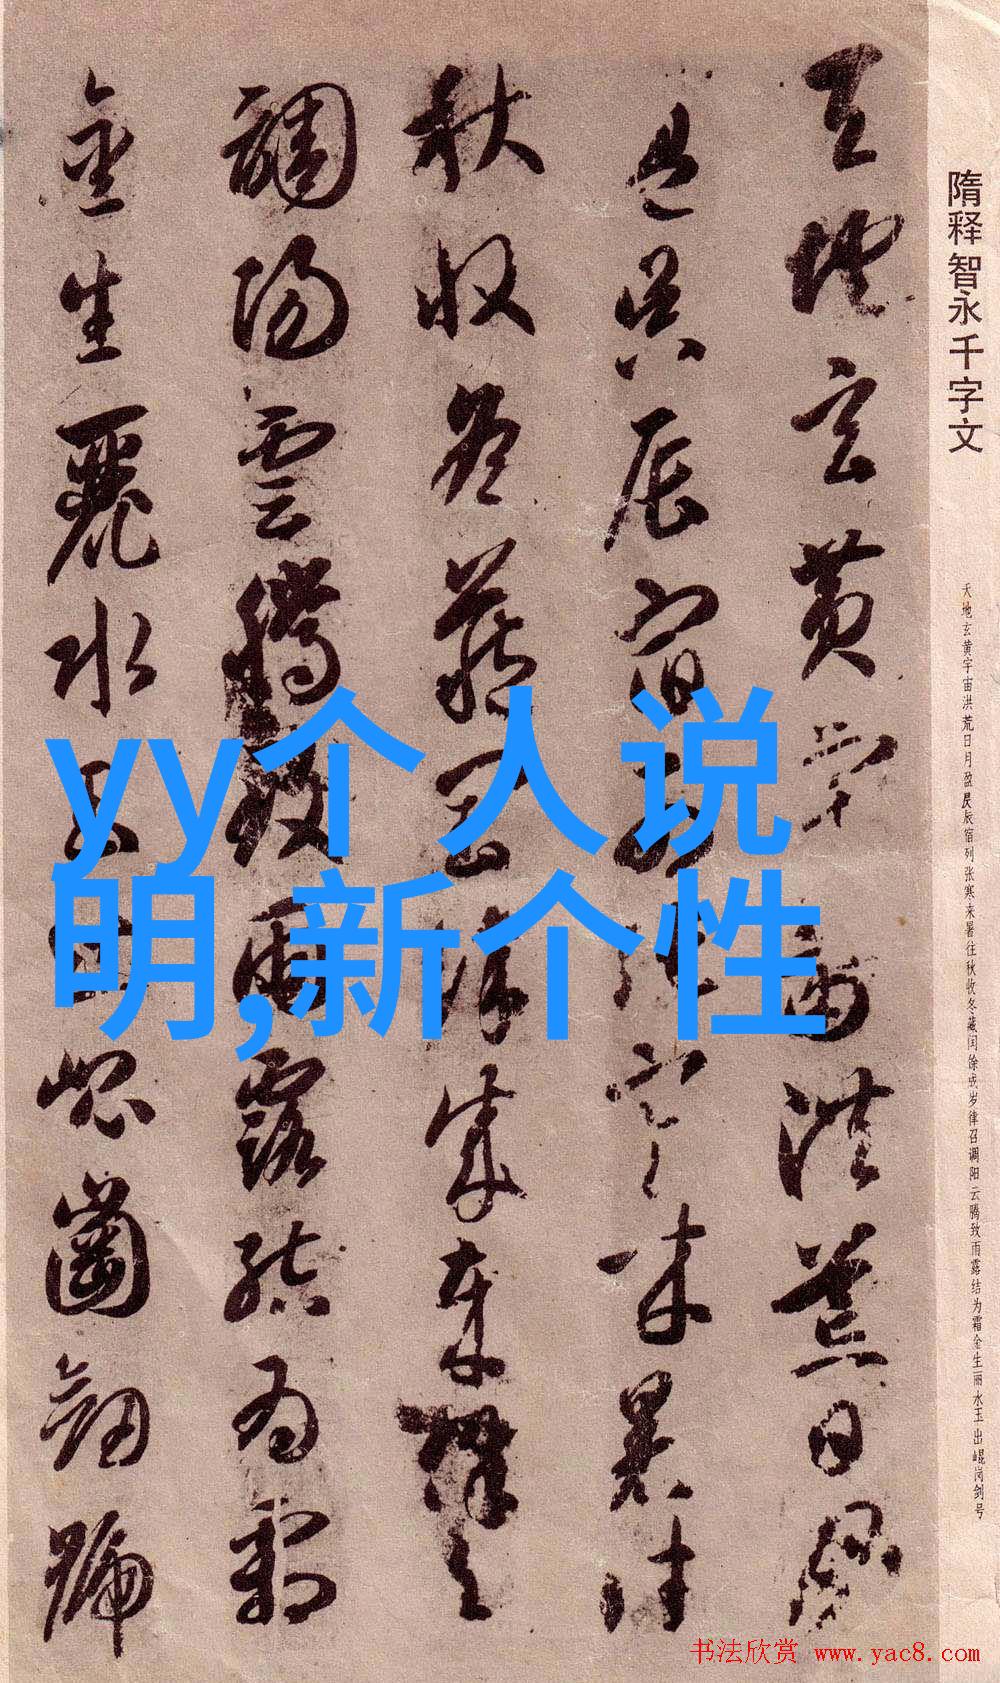 隋释智永千字文
天地玄黄宇宙洪荒日月盈昃辰宿列张寒来暑往秋收冬藏闰馀成岁律召调阳云腾致雨露结为霜金生丽水玉出崐岗剑号
天地玄黄宇宙洪荒日月
盈昃辰宿列張寒来暑往
秋收冬藏閏餘成歲律召
調陽雲騰致雨露結為霜
金生麗水玉出崐崗劒號
yy个人说
明,新个性
书法欣赏 www.yac8.com